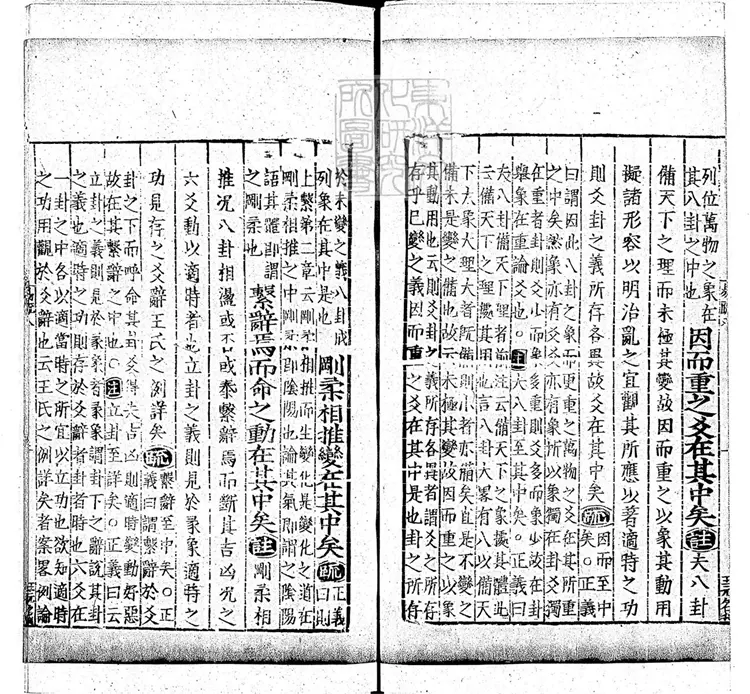 列位萬物之象在
其八卦之中也
因而重之爻在其中矣註夫八卦
備天下之理而未極其變故因而重之以象其動用
擬諸形容以明治亂之宜觀其所應以著適時之功
則爻卦之義所存各異故爻在其中矣疏
因而至中
矣。正義
曰謂因此八卦之象而更重之萬物之爻在其所重
之中矣然象亦有爻爻亦有象所以象獨在卦爻獨
在重者卦則爻少而象多重則爻多而象少故在卦
舉象在重論爻也。註夫八卦至其中矣。正義曰
夫八卦備天下理者前注云備天下之象據其體
云備天下之理據其用也言八卦大略有八以備天
下大象大理大者既備則小者亦備矣直是不變之
備未是變之備也故云未極其變故因而重之以象
其動用也云則爻卦之義所存各異者謂爻之所
存乎已變之義因而重之爻在其中是也卦之所存
於未變之義八卦成
列象在其中是也
剛柔相推變在其中矣疏
正義
曰則
上繫第二章云剛柔相推而生變化是變化之道在
剛柔相推之中剛柔即陰陽也論其氣即謂之陰陽
語其體即謂
之剛柔也
繫辭焉而命之動在其中矣註剛柔相
推况八卦相盪或否或泰繫辭焉而斷其吉凶况之
六爻動以適時者也立卦之義則見於彖象適時之
功見存之爻辭王氏之例詳矣疏
繫辭至中矣。正
義曰謂繫辭於爻
卦之下而呼命其卦爻得失吉凶則適時變動好惡
故在其繫辭之中也。註立卦至詳矣。正義曰云
立卦之義則見於彖象者彖象謂卦下之辭說其卦
之義也適時之功則存於爻辭者卦者時也六爻在
一卦之中各以適當時之所宜以立功也欲知適時
之功用觀於爻辭也云王氏之例詳矣者案略例論